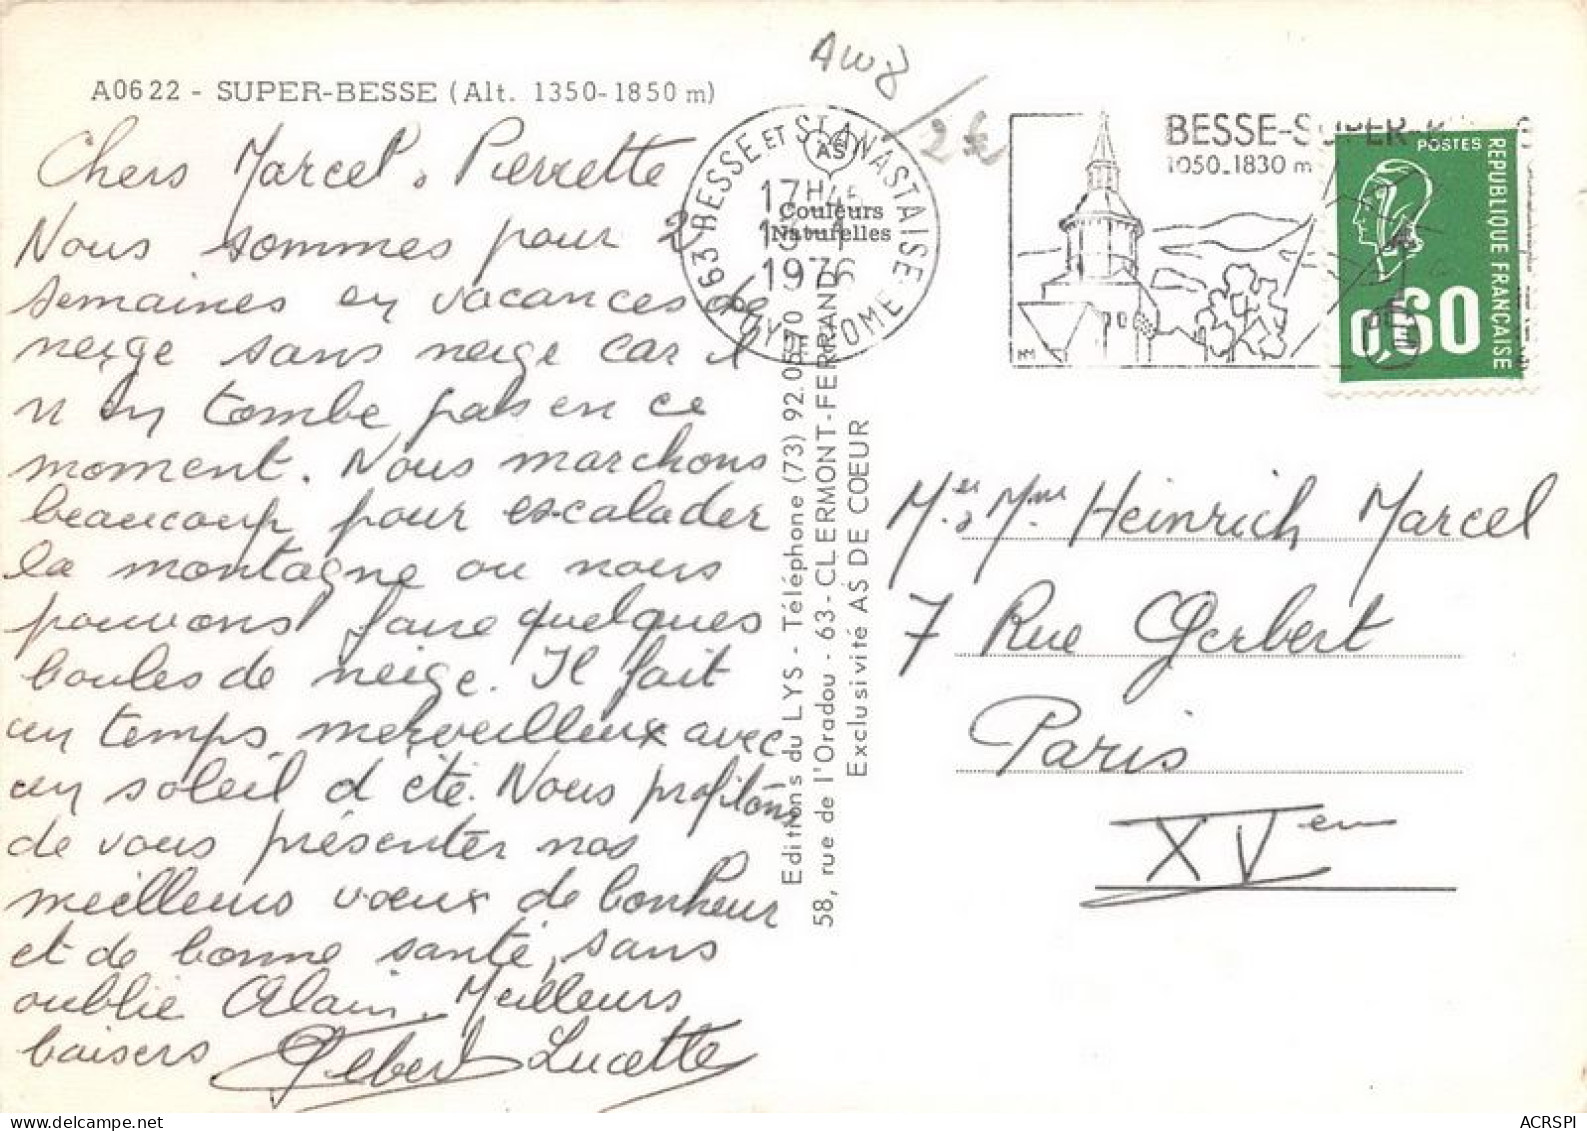 A0622 - SUPER-BESSE (Alt. 1350-1850 m)
Chers Marcel, Pierrette
Nous sommes pour 2
semaines en vacances de
neige sans neige car il
n en tombe pas en ce
moment. Nous marchons
beaucoup pour escalader
la montagne ou nous
pouvons faire quelques
boules de neige. Il fait
un temps merveilleux avec
un soleil d été. Nous profitons
de vous présenter nos
meilleurs vœux de bonheur
et de bonne santé, sans
oublie Alain. Meilleurs
baisers Lucette
Editions du LYS - Téléphone (73) 92.05.70
58, rue de l'Oradou - 63 - CLERMONT-FERRAND
Exclusivité AS DE CŒUR
AS
Couleurs
Naturelles
63 BESSE ET ST ANASTAISE
PUY DE DOME
17H45
1976
2€
BESSE-SUPER-B
1050-1830 m
POSTES
REPUBLIQUE FRANÇAISE
0,60
Mr, Mme Heinrich Marcel
7 Rue Gerbert
Paris
XVem
ACRSPI